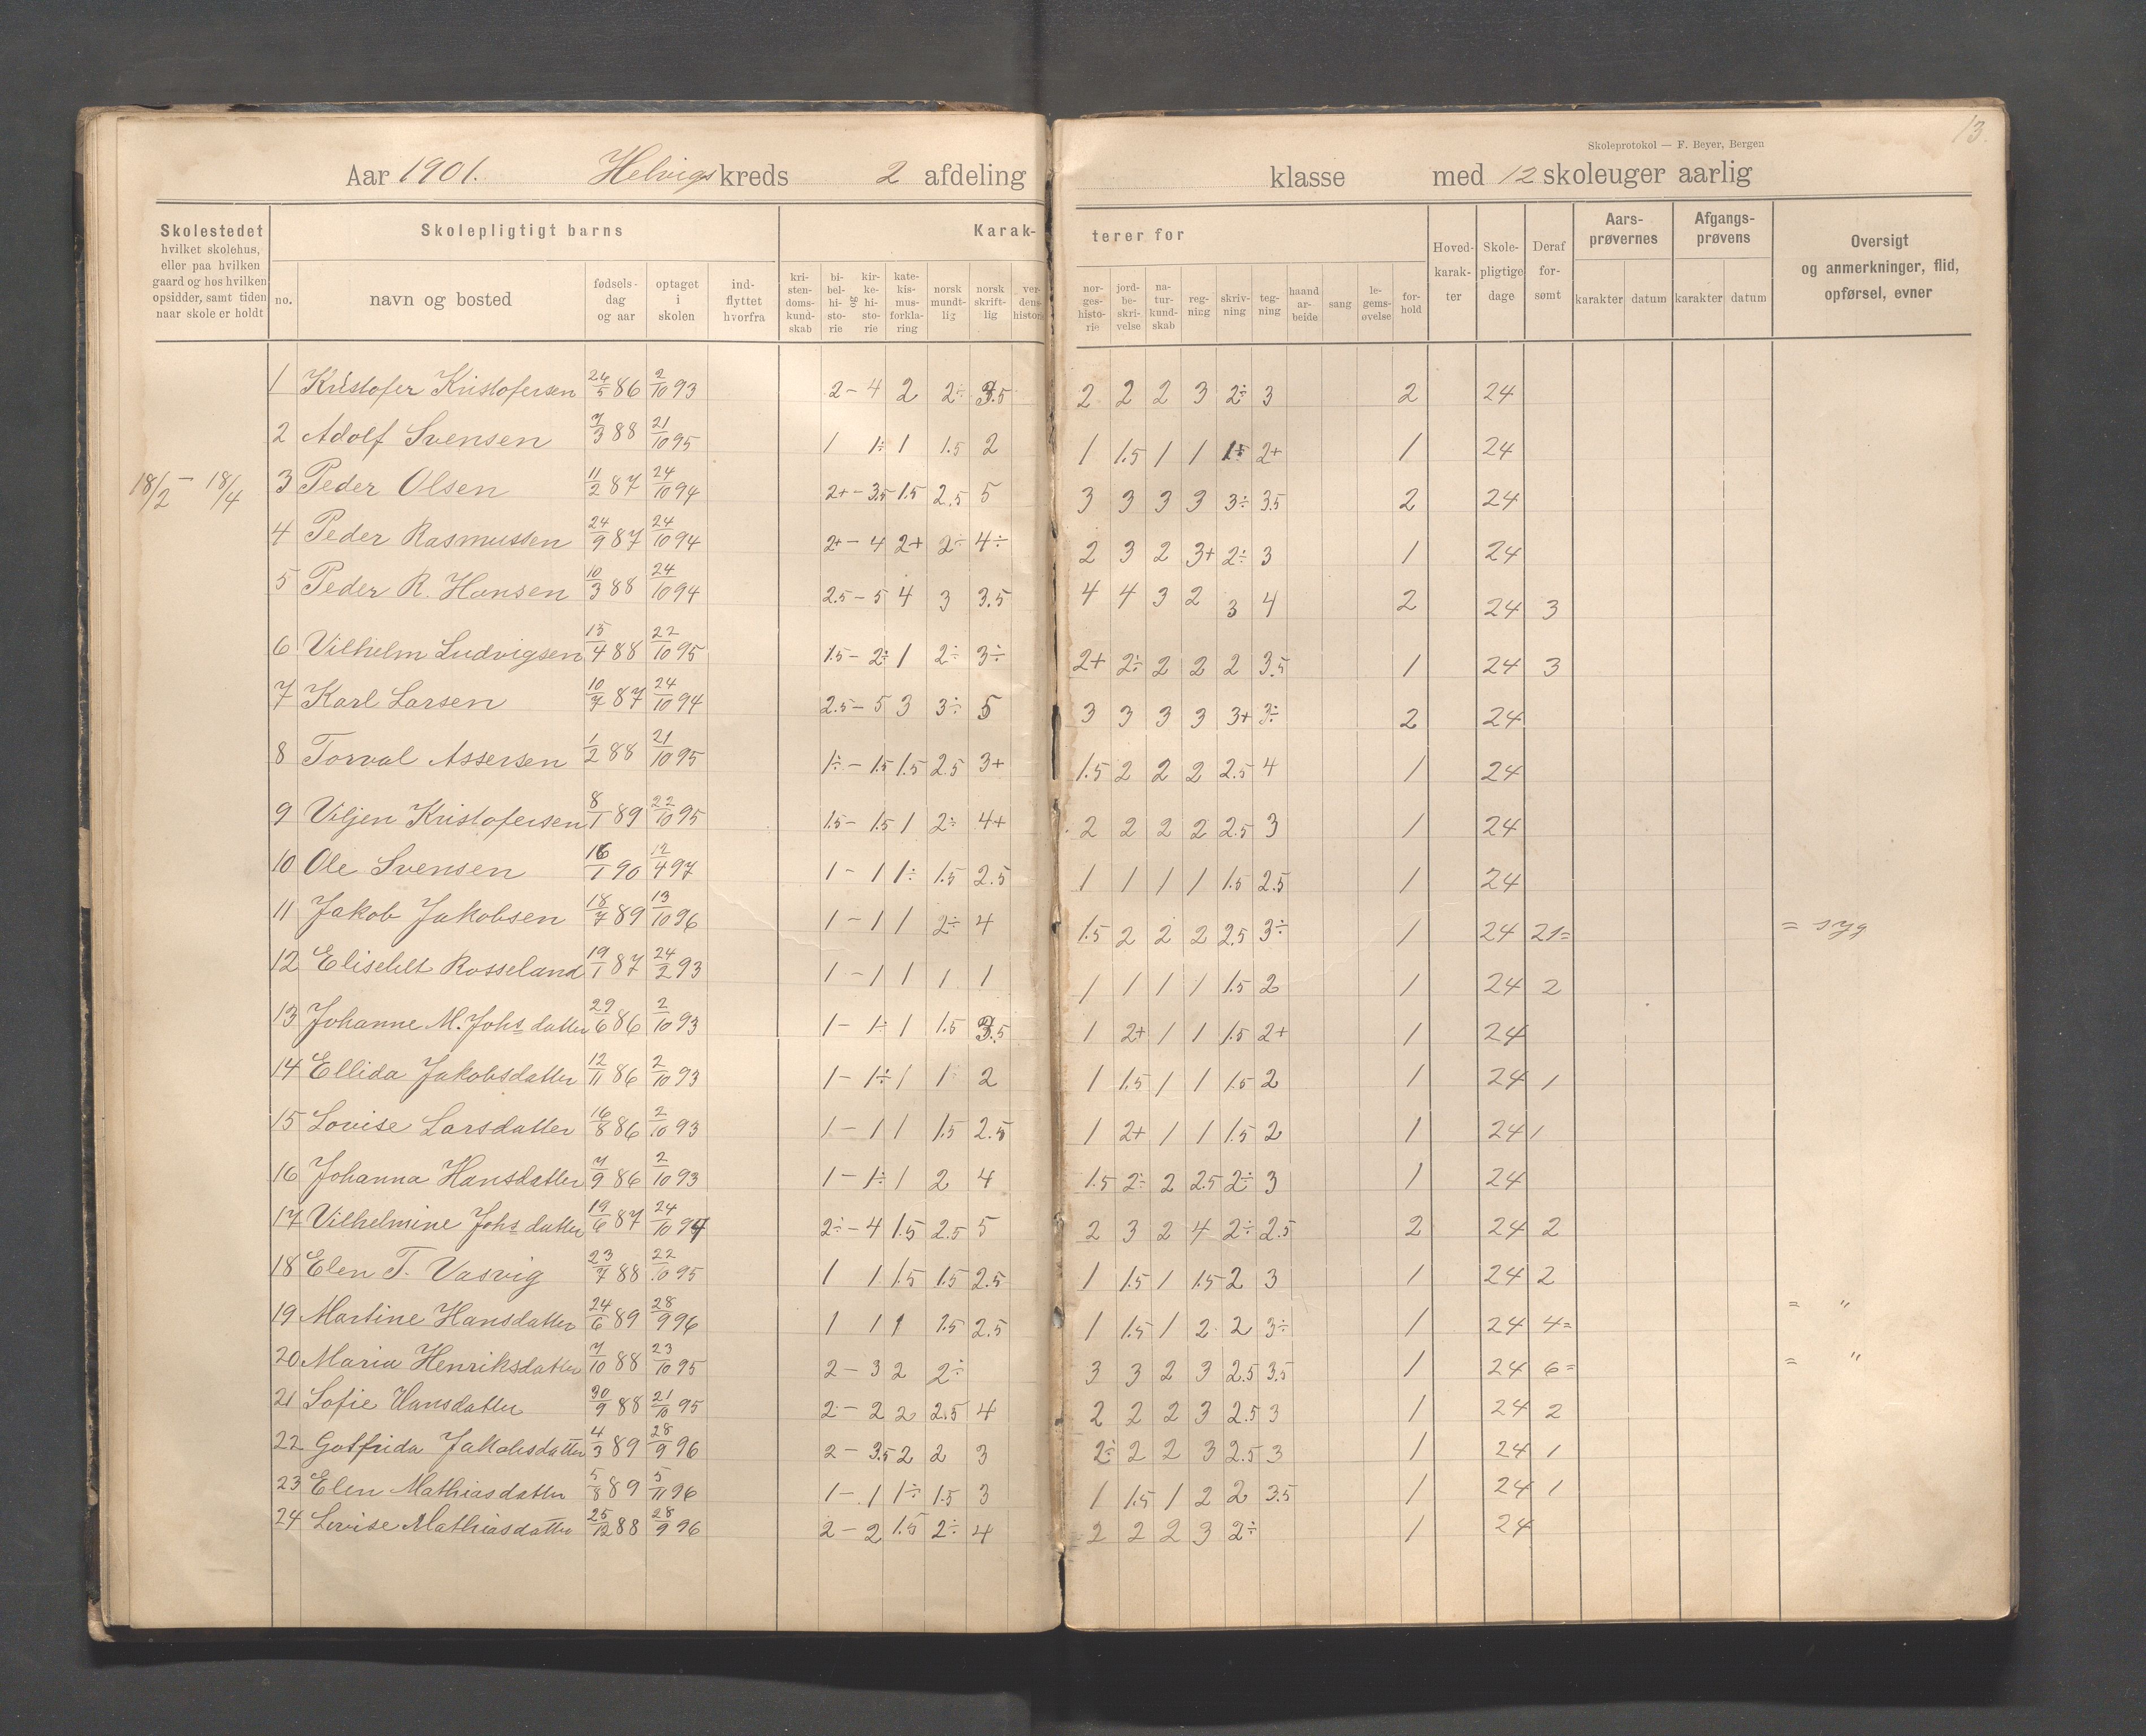 13.
Skoleprotokol — F. Beyer, Bergen
Aar 1901. Helvigs kreds 2 afdeling klasse med 12 skoleuger aarlig
Skolestedet
hvilket skolehus,
eller paa hvilken
gaard og hos hvilken
opsidder, samt tiden
naar skole er holdt
Skolepligtigt barns
no.
navn og bosted
fødsels-
dag
og aar
optaget
i
skolen
ind-
flyttet
hvorfra
Karak-
terer for
kri-
sten-
doms-
kund-
skab
bi-
bel-
hi-
sto-
rie
og
kir-
ke-
hi-
sto-
rie
kate-
kis-
mus-
forkla-
ring
norsk
mundt-
lig
norsk
skrift-
lig
ver-
dens-
historie
nor-
ges-
histo-
rie
jord-
be-
skri-
velse
na-
tur-
kund-
skab
reg-
ning
skriv-
ning
teg-
ning
haand
ar-
beide
sang
le-
gems-
øvelse
for-
hold
Hoved-
karak-
ter
Skole-
pligtige
dage
Deraf
for-
sømt
Aars-
prøvernes
karakter datum
Afgangs-
prøvens
karakter datum
Oversigt
og anmerkninger, flid,
opførsel, evner
18/2 – 18/4
1 Kristofer Kristofersen 26/5 86 2/10 93 2 – 4 2 2÷ 3.5 2 2 2 3 2÷ 3 2 24
2 Adolf Svensen 7/3 88 21/10 95 1 1÷ 1 1.5 2 1 1.5 1 1 1÷ 2+ 1 24
3 Peder Olsen 11/2 87 24/10 94 2+ – 3.5 1.5 2.5 5 3 3 3 3 3÷ 3.5 2 24
4 Peder Rasmussen 24/9 87 24/10 94 2+ – 4 2+ 2÷ 4÷ 2 3 2 3+ 2÷ 3 1 24
5 Peder R. Hansen 10/3 88 24/10 94 2.5 – 5 4 3 3.5 4 4 3 2 3 4 2 24 3
6 Vilhelm Ludvigsen 15/4 88 22/10 95 1.5 – 2÷ 1 2÷ 3÷ 2+ 2÷ 2 2 2 3.5 1 24 3
7 Karl Larsen 10/7 87 24/10 94 2.5 – 5 3 3÷ 5 3 3 3 3 3+ 3÷ 2 24
8 Torval Assersen 1/2 88 21/10 95 1÷ – 1.5 1.5 2.5 3+ 1.5 2 2 2 2.5 4 1 24
9 Viljen Kristofersen 8/1 89 22/10 95 1.5 – 1.5 1 2÷ 4+ 2 2 2 2 2.5 3 1 24
10 Ole Svensen 16/1 90 12/4 97 1 – 1 1÷ 1.5 2.5 1 1 1 1 1.5 2.5 1 24
11 Jakob Jakobsen 18/7 89 13/10 96 1 – 1 1 2÷ 4 1.5 2 2 2 2.5 3÷ 1 24 21= = syg
12 Elisebet Rosseland 19/1 87 24/2 93 1 – 1 1 1 1 1 1 1 1 1.5 2 1 24 2
13 Johanne M. Johs datter 29/6 86 2/10 93 1 – 1÷ 1 1.5 3.5 1 2+ 1 1 1.5 2+ 1 24
14 Ellida Jakobsdatter 12/11 86 2/10 93 1 – 1÷ 1 1 2 1 1.5 1 1 1.5 2 1 24 1
15 Lovise Larsdatter 16/8 86 2/10 93 1 – 1 1 1.5 2.5 1 2+ 1 1 1.5 2 1 24 1
16 Johanna Hansdatter 7/9 86 2/10 93 1 – 1÷ 1 2 4 1.5 2÷ 2 2.5 2÷ 3 1 24
17 Vilhelmine Johs datter 19/6 87 24/10 94 2÷ – 4 1.5 2.5 5 2 3 2 4 2÷ 2.5 2 24 2
18 Elen T. Vasvig 23/7 88 22/10 95 1 1 1.5 1.5 2.5 1 1.5 1 1.5 2 3 1 24 2
19 Martine Hansdatter 24/6 89 28/9 96 1 1 1 1.5 2.5 1 1.5 1 2 2 3÷ 1 24 4= = "
20 Maria Henriksdatter 7/10 88 23/10 95 2 – 3 2 2÷ 3 3 2 3 2.5 3.5 1 24 6= = "
21 Sofie Hansdatter 30/9 88 21/10 95 2 – 2 2 2.5 4 2 2 2 3 2.5 3 1 24 2
22 Gotfrida Jakobsdatter 4/3 89 28/9 96 2 – 3.5 2 2 3 2÷ 2 2 3 2.5 3 1 24 1
23 Elen Mathiasdatter 5/8 89 5/11 96 1 – 1 1÷ 1.5 3 1 1.5 1 2 2 3.5 1 24 1
24 Lovise Mathiasdatter 25/12 88 28/9 96 2 – 2 1.5 2÷ 4 2 2 2 3 2÷ 1 24